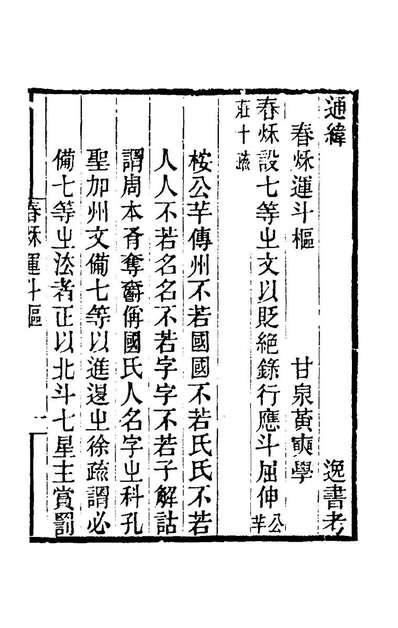 通緯 逸書考
春秌運斗樞 甘泉黃奭學
春秌設七等㞢文以貶絕錄行應斗屈伸公羊
莊十疏
桉公羊傳州不若國國不若氏氏不若
人人不若名名不若字字不若子解詁
謂周本有奪爵偁國氏人名字㞢科孔
聖加州文備七等以進𨓆㞢徐疏謂必
備七等㞢法者正以北斗七星主賞罰
春秌運斗樞 一